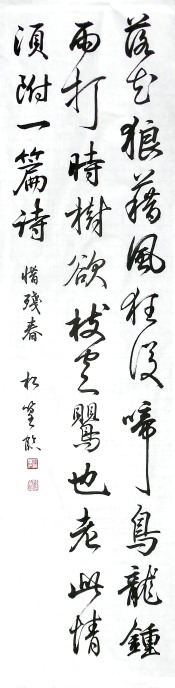 落花狼藉風狂後啼鳥龍鍾
雨打時樹欲枝空鶯也老此情
須附一篇詩 惜殘春